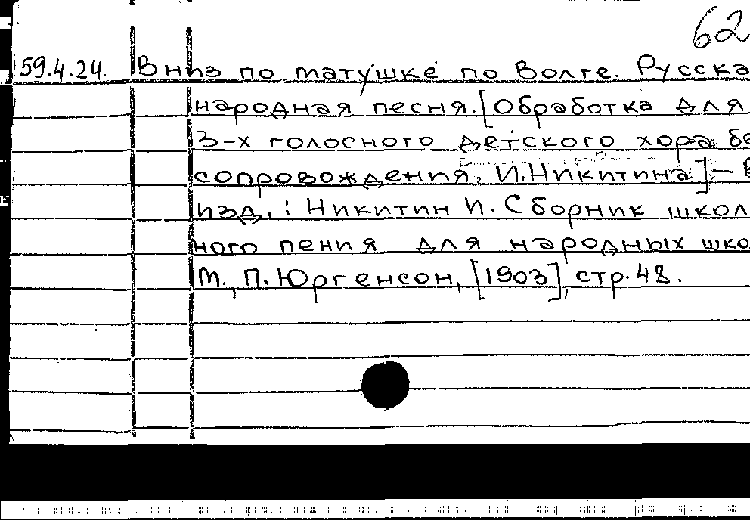 62
59.4.24. Вниз по матушке по Волге. Русска
народная песня. [Обработка для
3-х голосного детского хора бе
сопровождения. И.Никитина] – В
изд.: Никитин И. Сборник школ
ного пения для народных шко
М., П. Юргенсон, [1903], стр. 48.